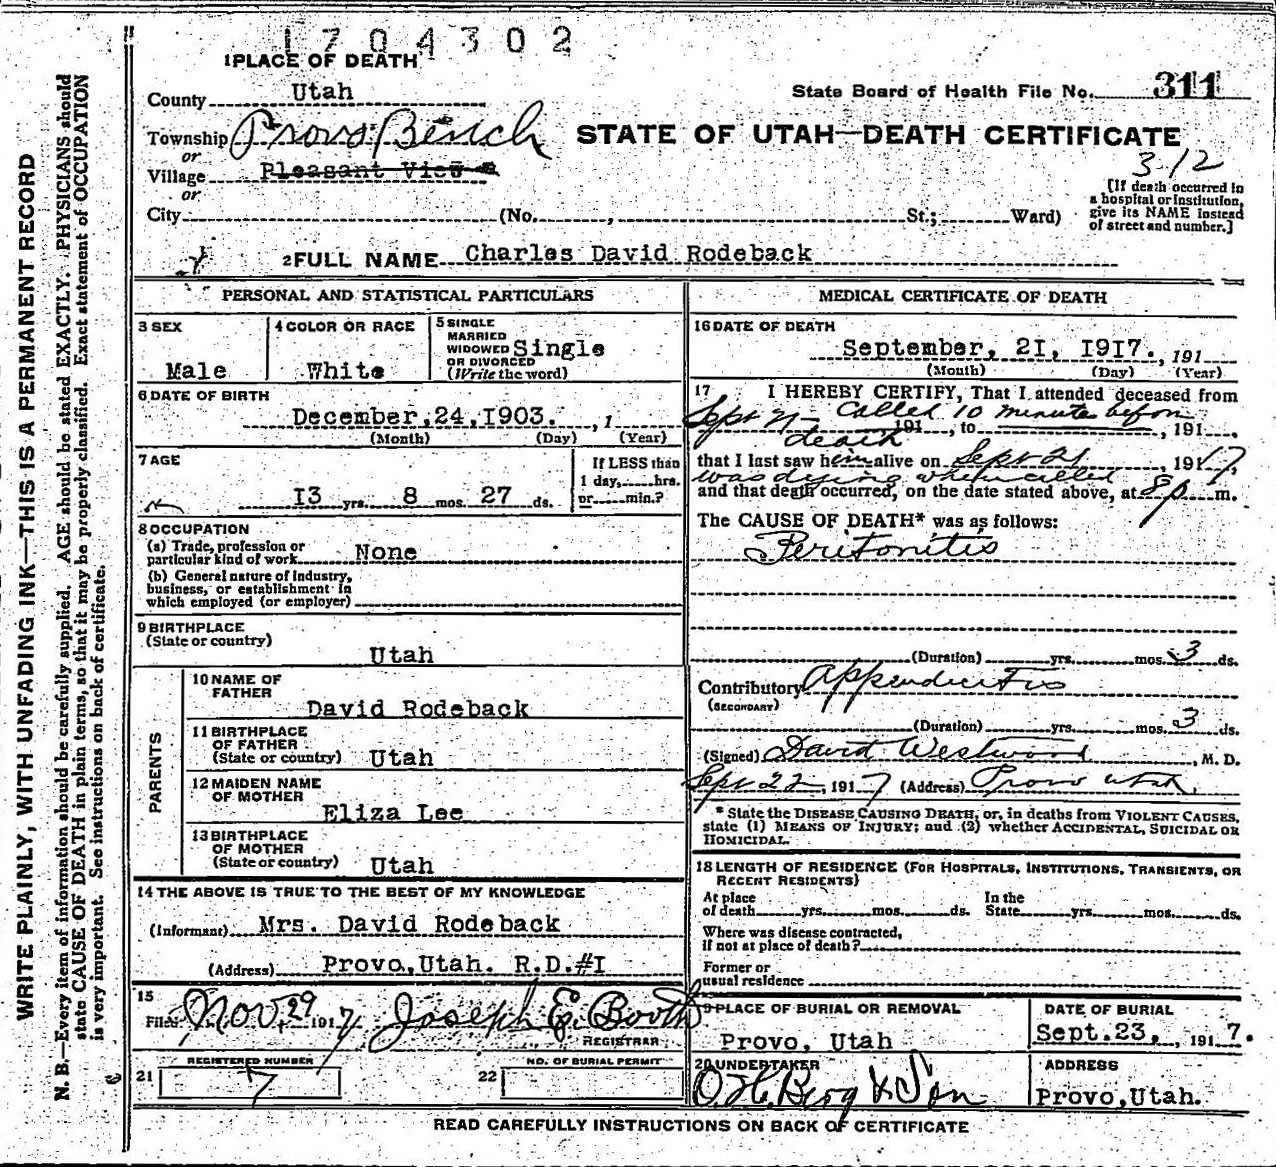 1704302
1 PLACE OF DEATH
County Utah
State Board of Health File No. 311
Township Provo Bench
STATE OF UTAH—DEATH CERTIFICATE
or
312
Village Pleasant View
or
City (No. , St.; Ward)
[If death occurred in
a hospital or institution,
give its NAME instead
of street and number.]
2 FULL NAME Charles David Rodeback
PERSONAL AND STATISTICAL PARTICULARS
3 SEX
Male
4 COLOR OR RACE
White
5 SINGLE
MARRIED
WIDOWED Single
OR DIVORCED
(Write the word)
6 DATE OF BIRTH
December,24,1903. , 1
(Month) (Day) (Year)
7 AGE
I3 yrs. 8 mos. 27 ds.
If LESS than
1 day, hrs.
or min.?
8 OCCUPATION
(a) Trade, profession or
particular kind of work None
(b) General nature of industry,
business, or establishment in
which employed (or employer)
9 BIRTHPLACE
(State or country)
Utah
PARENTS
10 NAME OF
FATHER
David Rodeback
11 BIRTHPLACE
OF FATHER
(State or country) Utah
12 MAIDEN NAME
OF MOTHER
Eliza Lee
13 BIRTHPLACE
OF MOTHER
(State or country) Utah
14 THE ABOVE IS TRUE TO THE BEST OF MY KNOWLEDGE
(Informant) Mrs. David Rodeback
(Address) Provo,Utah. R.D.#I
15
Filed Nov, 29 1917 Joseph E. Booth
REGISTRAR
REGISTERED NUMBER
21 7
NO. OF BURIAL PERMIT
22
MEDICAL CERTIFICATE OF DEATH
16 DATE OF DEATH
September, 2I, I9I7. , 191
(Month) (Day) (Year)
17 I HEREBY CERTIFY, That I attended deceased from
Sept 21 - Called 10 minutes before
191 , to , 191 ,
death
that I last saw him alive on Sept 21 , 1917,
was dying when called
and that death occurred, on the date stated above, at 8 p m.
The CAUSE OF DEATH* was as follows:
Peritonitis
(Duration) yrs. mos. 3 ds.
Contributory Appendicitis
(SECONDARY)
(Duration) yrs. mos. 3 ds.
(Signed) David Westwood , M. D.
Sept 22 , 1917 (Address) Provo Utah.
* State the DISEASE CAUSING DEATH, or, in deaths from VIOLENT CAUSES,
state (1) MEANS OF INJURY; and (2) whether ACCIDENTAL, SUICIDAL OR
HOMICIDAL.
18 LENGTH OF RESIDENCE (FOR HOSPITALS, INSTITUTIONS, TRANSIENTS, OR
RECENT RESIDENTS)
At place
of death yrs. mos. ds.
In the
State yrs. mos. ds.
Where was disease contracted,
if not at place of death?
Former or
usual residence
19 PLACE OF BURIAL OR REMOVAL
Provo, Utah
DATE OF BURIAL
Sept.23, , 191 7.
20 UNDERTAKER
O. H. Berg & Son
ADDRESS
Provo,Utah.
READ CAREFULLY INSTRUCTIONS ON BACK OF CERTIFICATE
WRITE PLAINLY, WITH UNFADING INK—THIS IS A PERMANENT RECORD
N. B.—Every item of information should be carefully supplied. AGE should be stated EXACTLY. PHYSICIANS should
state CAUSE OF DEATH in plain terms, so that it may be properly classified. Exact statement of OCCUPATION
is very important. See instructions on back of certificate.